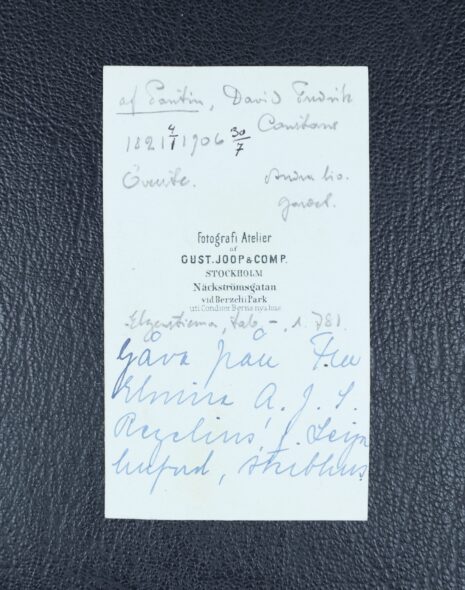 af Pontin, David Fredrik
Constans
1821 4/1 1906 30/7
Överste. Andra liv-
gardet.
Fotografi Atelier
af
GUST. JOOP & COMP.
STOCKHOLM
Näckströmsgatan
vid Berzelii Park
uti Conditor Bernsnya hus
Elgenstierna, tab. 1. 781.
Gåva från Fru
Elmina A. J. S.
Rezelius, f. Leijon
hufvud,